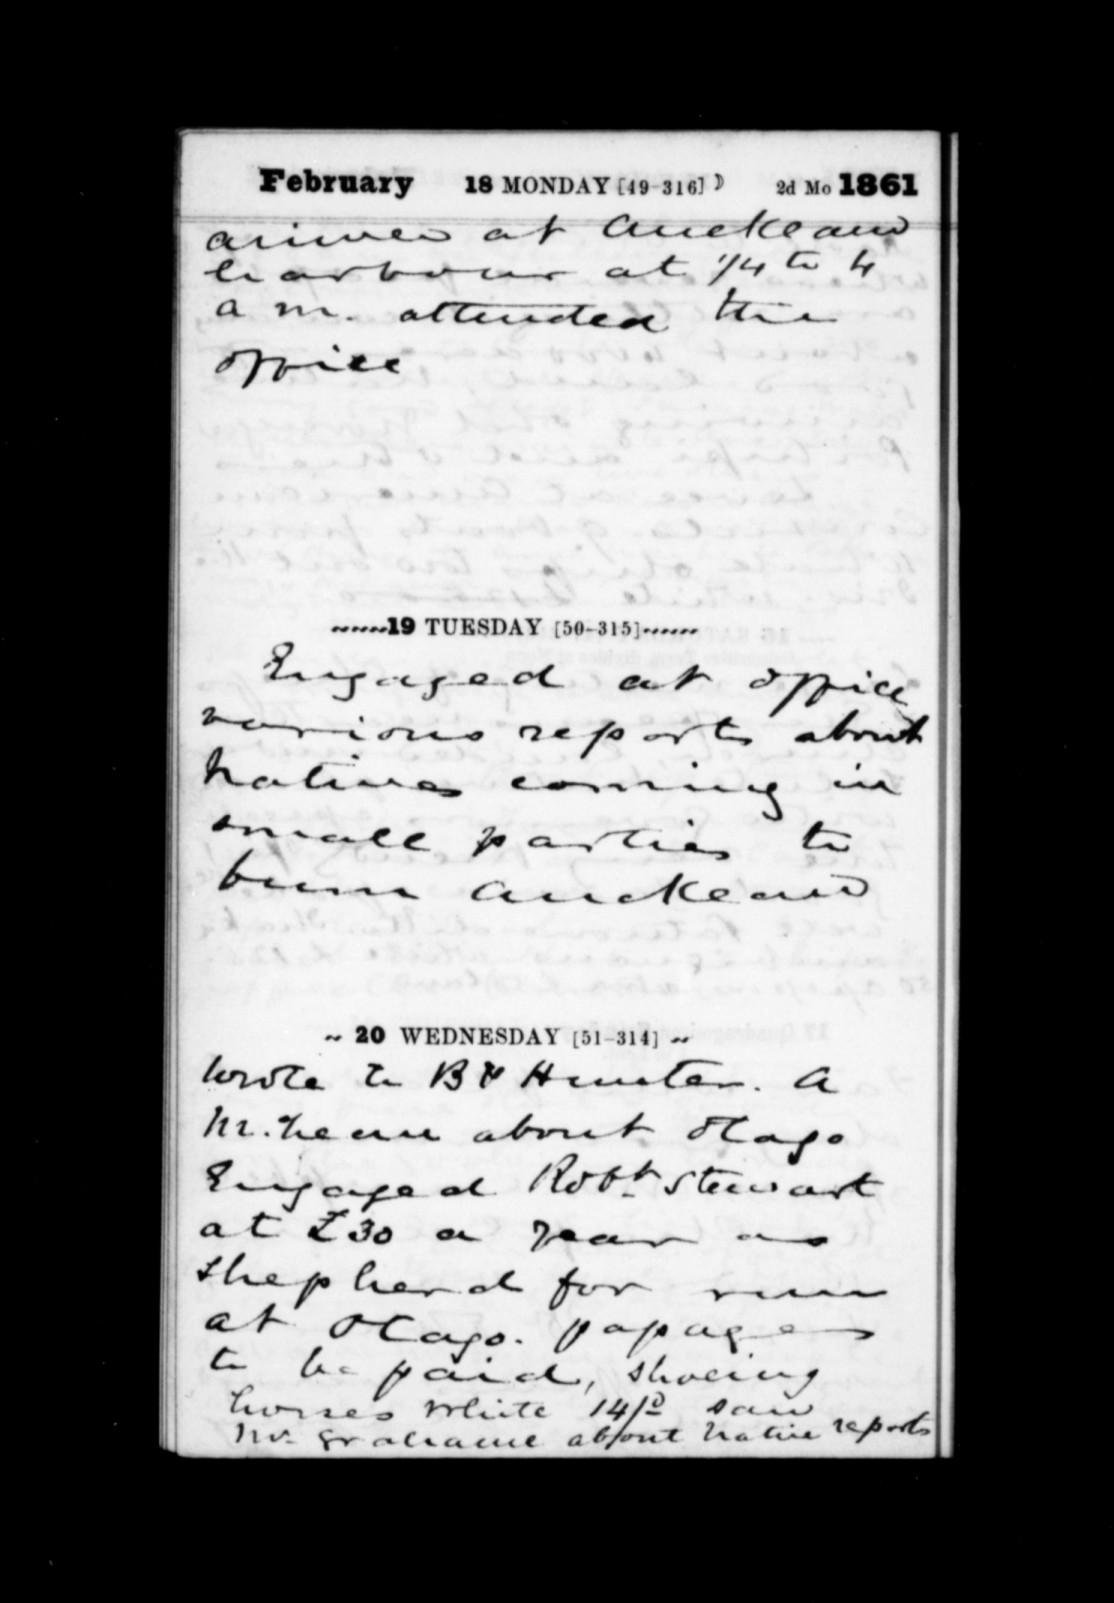 February 18 MONDAY [49-316] ) 2d Mo 1861
arrived at Auckland
harbour at 1/4 to 4
a m. attended the
office
19 TUESDAY [50-315]
Engaged at office
various reports about
Natives coming in
small parties to
burn Auckland
20 WEDNESDAY [51-314]
wrote to B & Hunter. A
McLean about Otago
Engaged Robt. Stewart
at £30 a year as
shepherd for run
at Otago. passage
to be paid, shoeing
horses White 14/- saw
Mr Grahame about Native reports